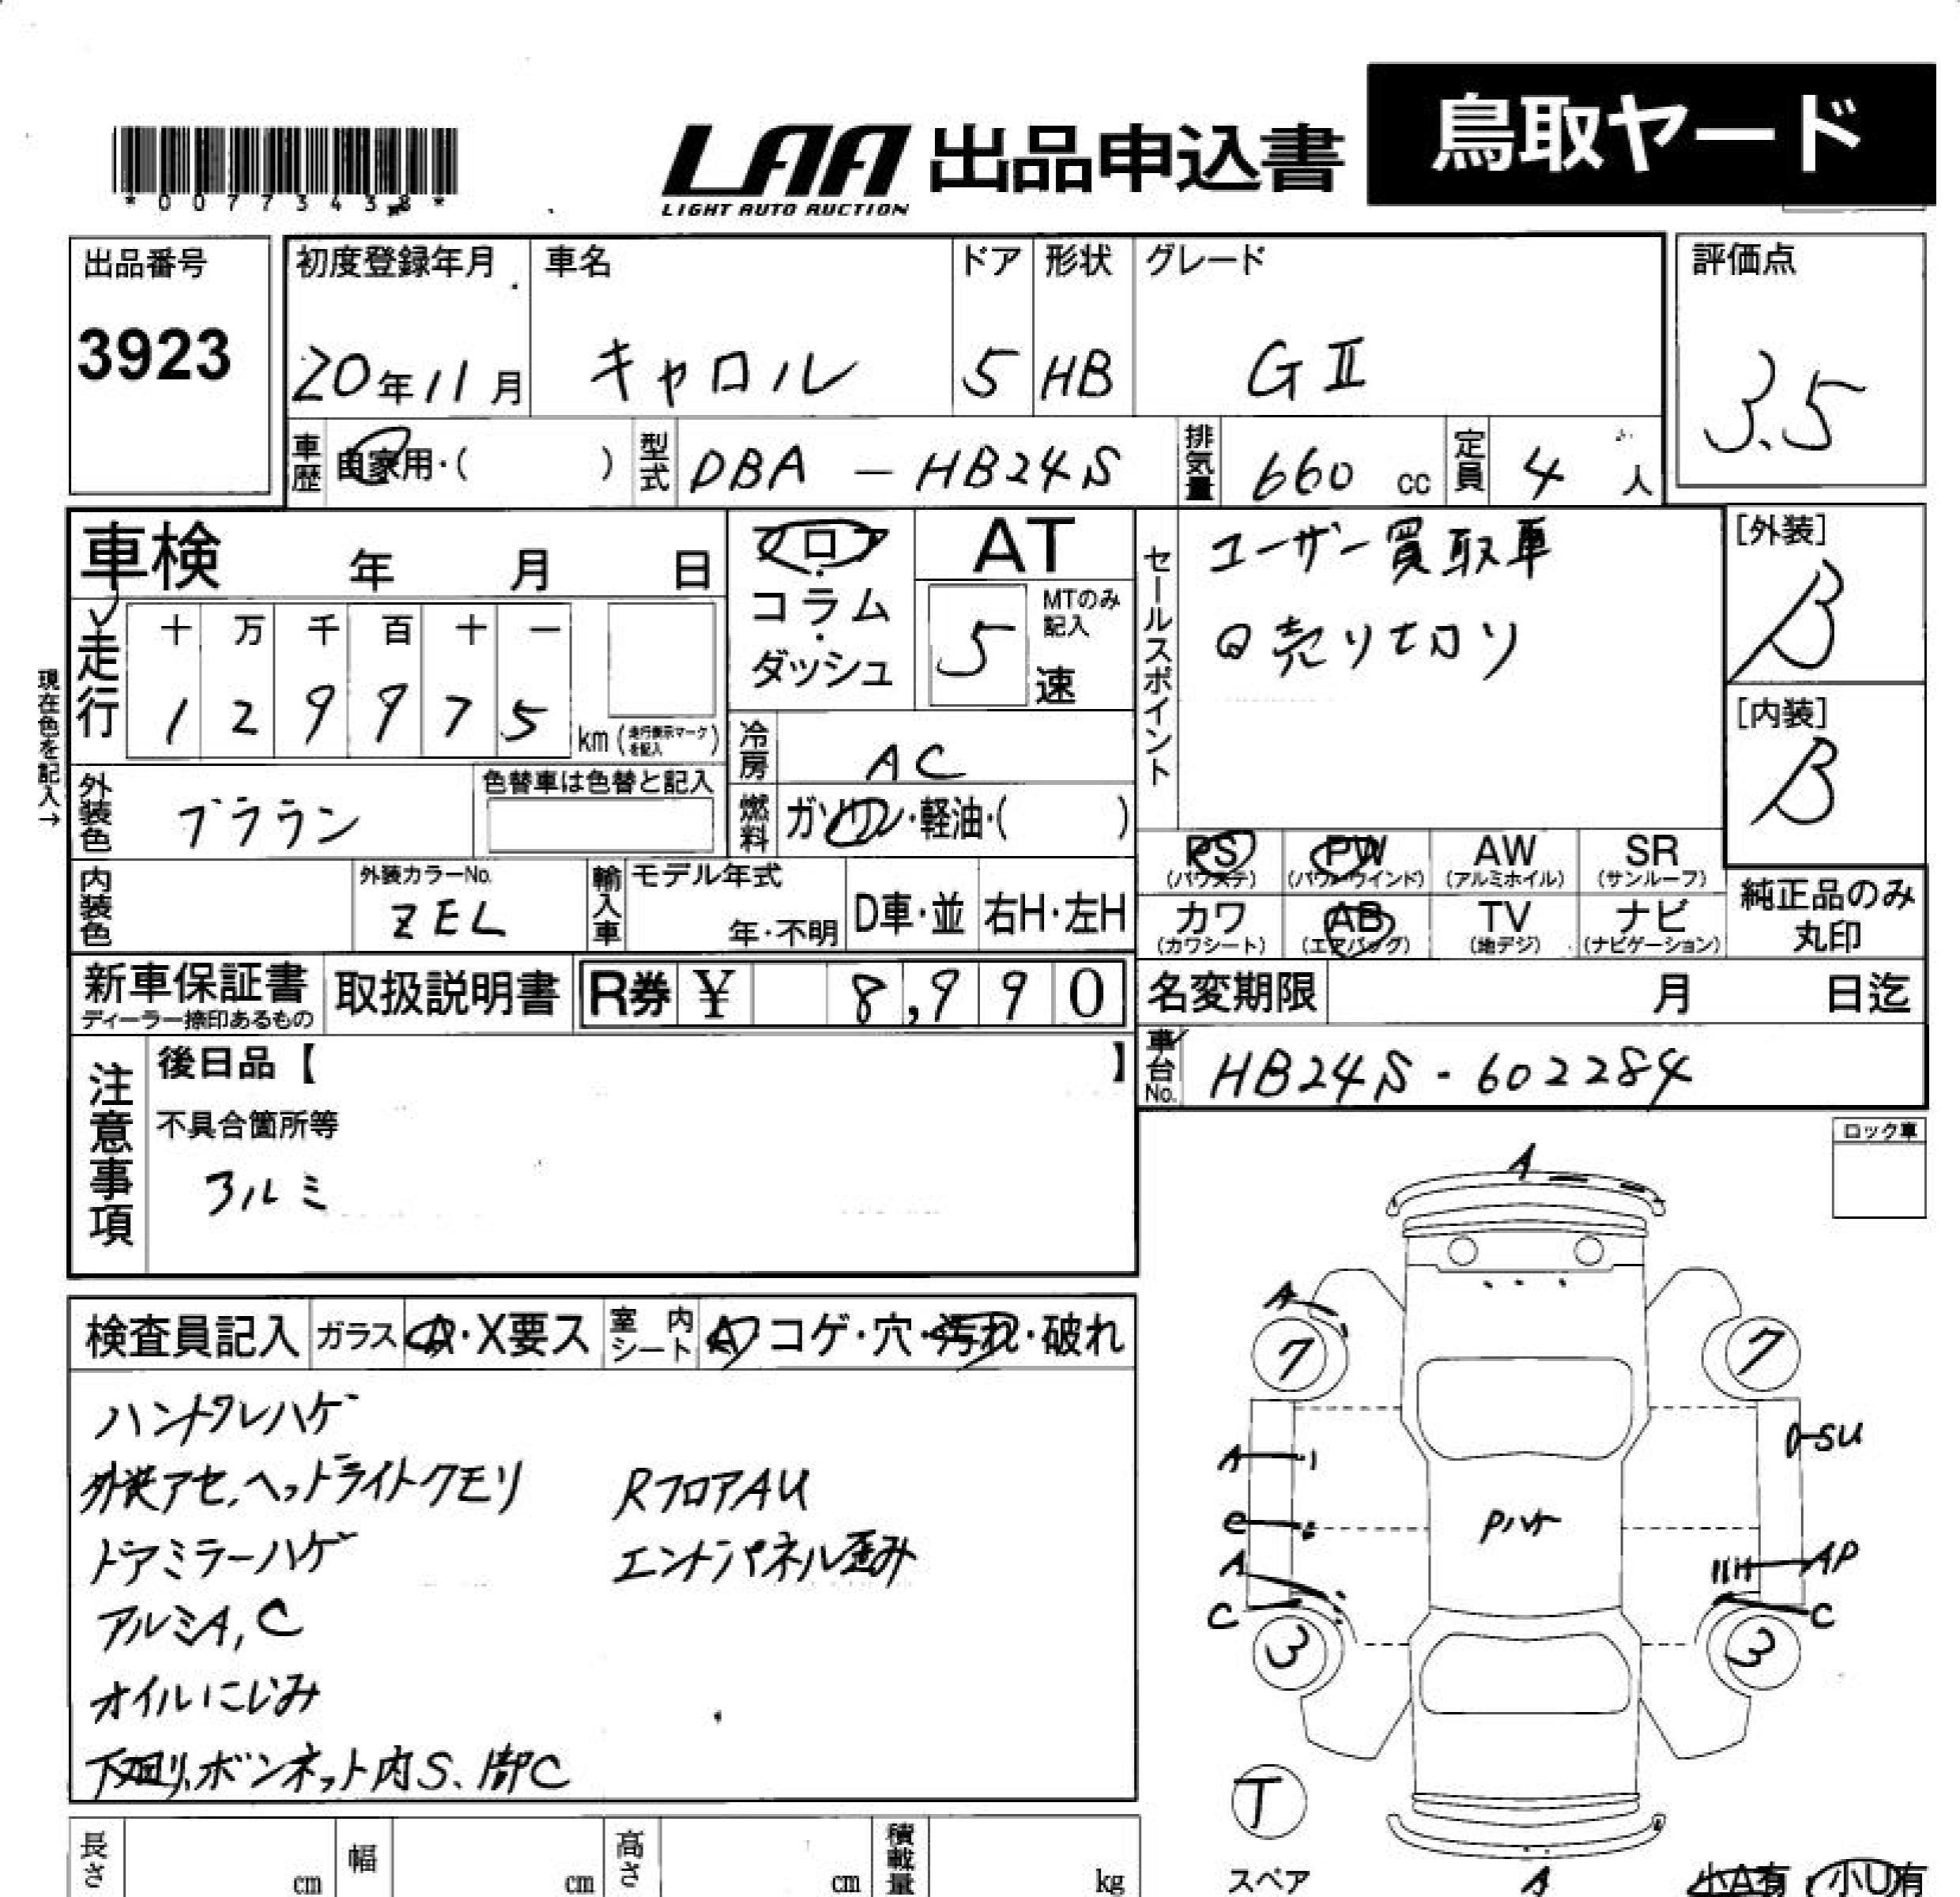 鳥取ヤード
LAA 出品申込書
LIGHT AUTO AUCTION
*00773438*
出品番号 初度登録年月 車名 ドア 形状 グレード 評価点
3923 20年11月 キャロル 5 HB GⅡ 3.5
車歴 自家用・( ) 型式 DBA - HB24S 排気量 660 cc 定員 4 人
車検 年 月 日 フロア・コラム・ダッシュ AT
5 MTのみ記入 速
セールスポイント ユーザー買取車
売り切り
[外装] B
[内装] B
走行 十 万 千 百 十 一
1 2 9 9 7 5 km (走行表示マークを記入)
現在色を記入→
冷房 AC
外装色 ブララン 色替車は色替と記入
燃料 ガソリン・軽油・( )
PS (パワステ) PW (パワーウインド) AW (アルミホイル) SR (サンルーフ)
カワ (カワシート) AB (エアバッグ) TV (地デジ) ナビ (ナビゲーション)
純正品のみ丸印
内装色 外装カラーNo. ZEL 輸入車 モデル年式 年・不明 D車・並 右H・左H
新車保証書 ディーラー捺印あるもの 取扱説明書 R券 ¥ 8,990 名変期限 月 日迄
車台No. HB24S - 602284
注意事項 後日品【 】
不具合箇所等
アルミ
ロック車
検査員記入 ガラス A・X要ス 室内シート A コゲ・穴・汚れ・破れ
ハンドルハゲ
外装アセ、ヘッドライトクモリ RフロアAU
ドアミラーハゲ エンドパネル歪み
アルミA,C
オイルにじみ
下廻り、ボンネット内S、部C
A
A
7 7
A SU
C
A AP
C C
3 3
T
スペア
A
小A有・小U有
長さ cm 幅 cm 高さ cm 積載量 kg